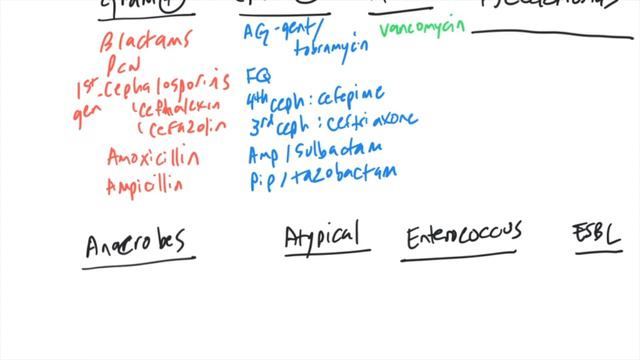 Blactams
PCN
1st-Cephalosporins
gen
cephalexin
cefazolin
Amoxicillin
Ampicillin
AG-gent/
tobramycin
FQ
4th ceph: cefepime
3rd ceph: ceftriaxone
Amp/Sulbactam
Pip/tazobactam
vancomycin
Anaerobes
Atypical
Enterococcus
ESBL